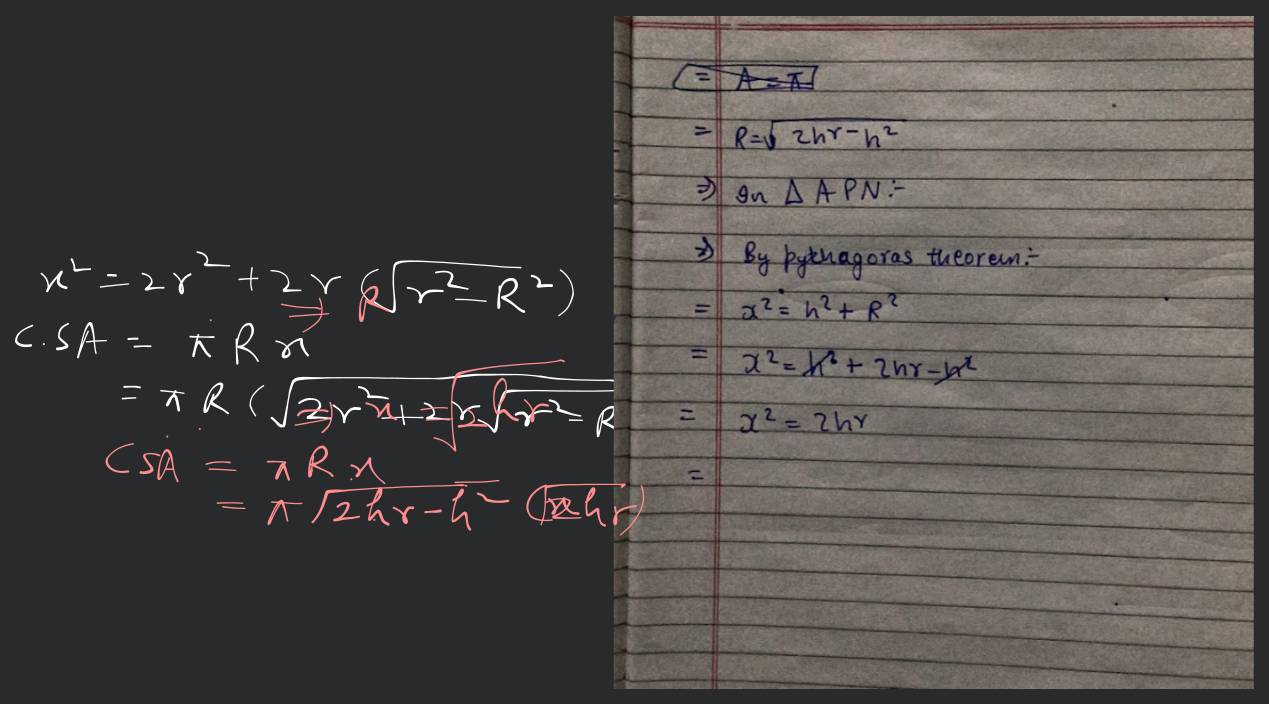 x² = 2r² + 2r (√r² - R²)
C.SA = π R x
= π R (
CSA = π R x
= π √2hr - h² (√2hr)
= A = π
= R = √2hr - h²
⇒ In Δ APN :-
⇒ By pythagoras theorem :-
= x² = h² + R²
= x² = h² + 2hr - h²
= x² = 2hr
=